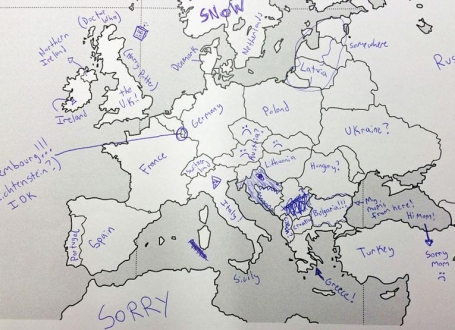 SNOW
(Doctor
Who)
Northern
Ireland
(Harry Potter)
the
UK!
Ireland
Denmark
somewhere
Latvia
Rus
Germany
Poland
embourg!!!
chtenstein?)
IDK
France
Ukraine?
Lithuania
Hungary?
Italy!
Bulgaria!!!
My
mom's
from here!
Hi Mom!
Sorry
Mom
Portugal
Spain
Turkey
Sicily
Greece!
SORRY